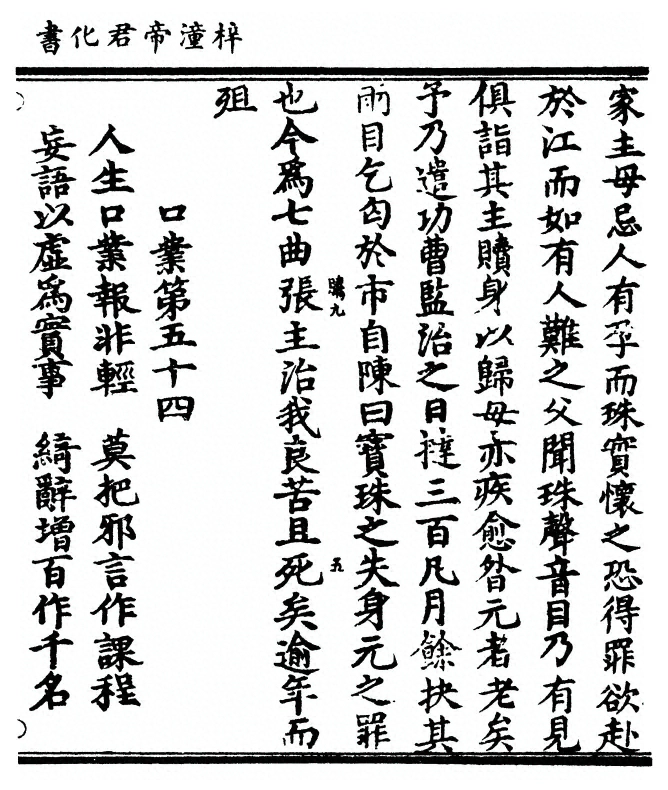 梓潼帝君化書
家主母忌人有孕而珠實懷之恐得罪欲赴
於江而如有人難之父聞珠聲音目乃有見
俱詣其主贖身以歸母亦疾愈昝元者老矣
予乃遣功曹監治之日撻三百凡月餘抉其
兩目乞匄於市自陳曰寶珠之失身元之罪
也今爲七曲張主治我良苦且死矣逾年而
殂
騰九
五
口業第五十四
人生口業報非輕 莫把邪言作課程
妄語以虛爲實事 綺辭增百作千名